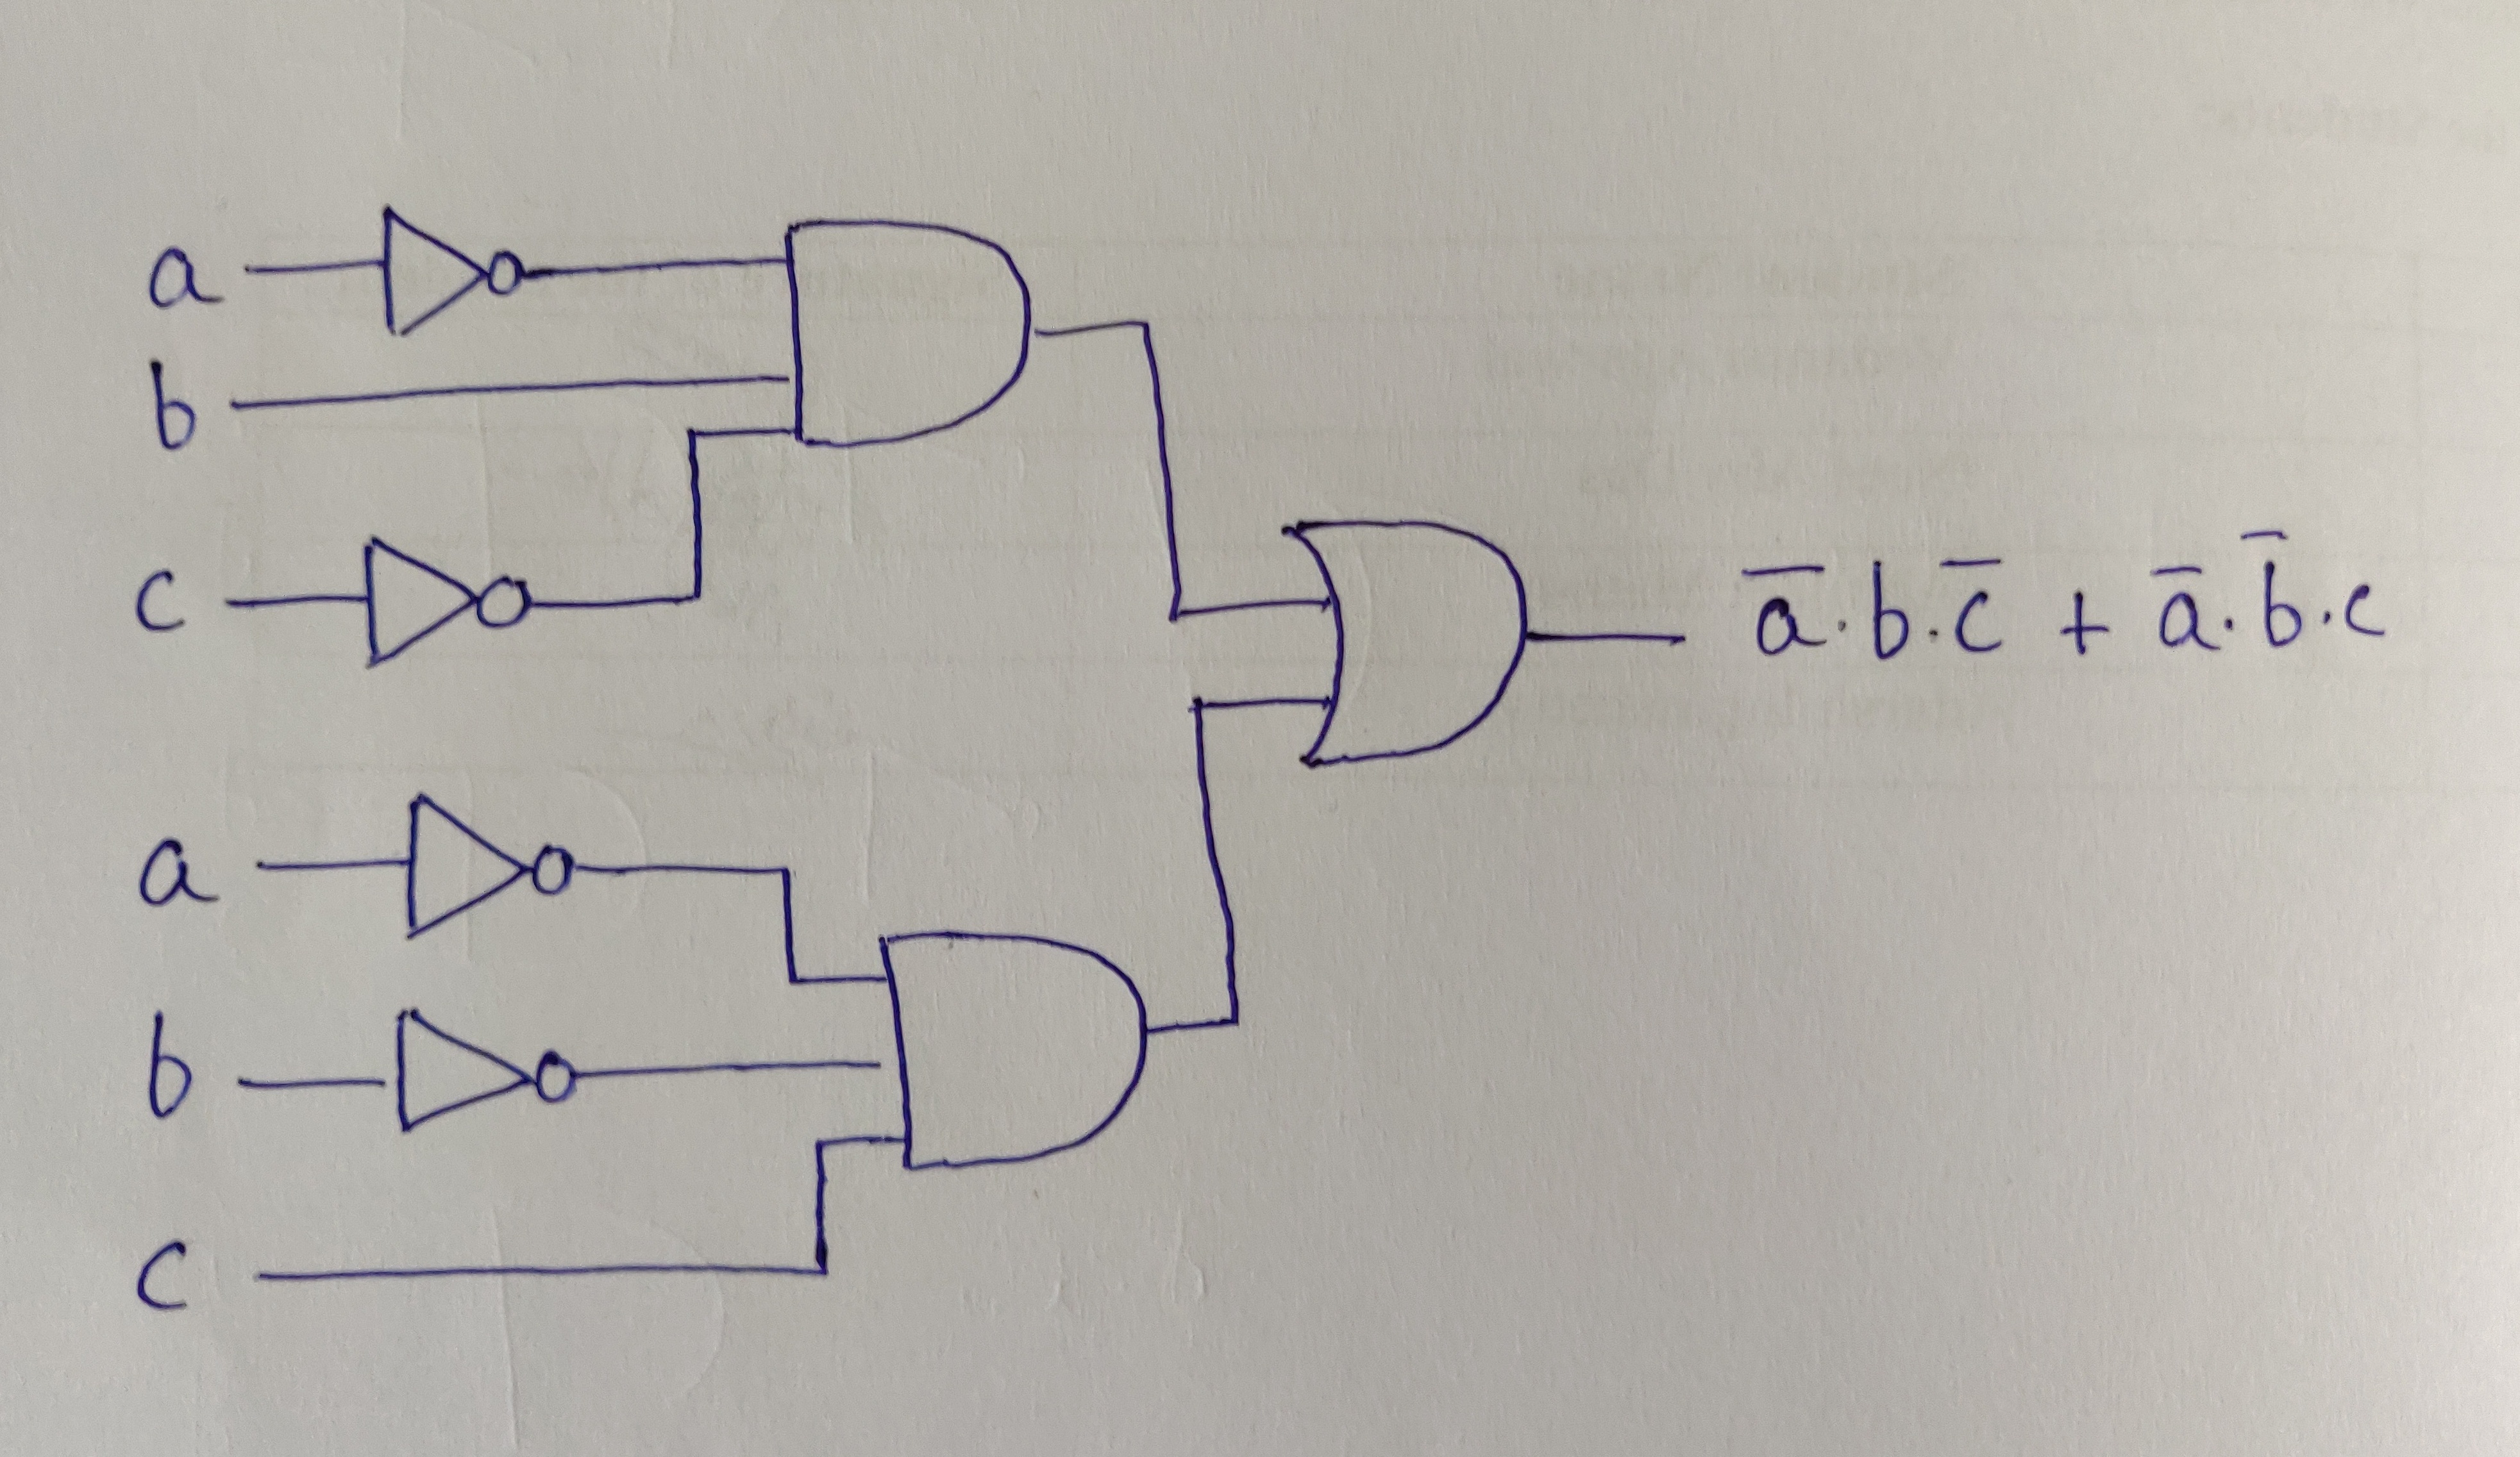 a
b
c
a̅.b.c̅ + a̅.b̅.c
a
b
c